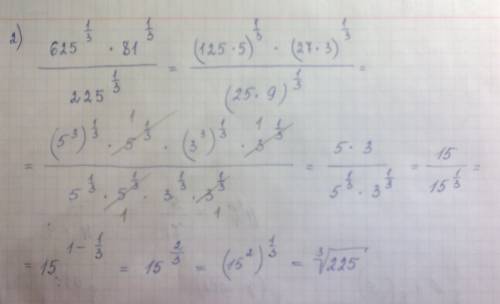 2) (625^(1/3) · 81^(1/3)) / 225^(1/3) = ((125·5)^(1/3) · (27·3)^(1/3)) / (25·9)^(1/3) =
= ((5^3)^(1/3) · 5^(1/3) 1 · (3^3)^(1/3) · 3^(1/3) 1) / (5^(1/3) · 5^(1/3) 1 · 3^(1/3) · 3^(1/3) 1) = (5·3) / (5^(1/3) · 3^(1/3)) = 15 / 15^(1/3) =
= 15^(1 - 1/3) = 15^(2/3) = (15^2)^(1/3) = ∛225